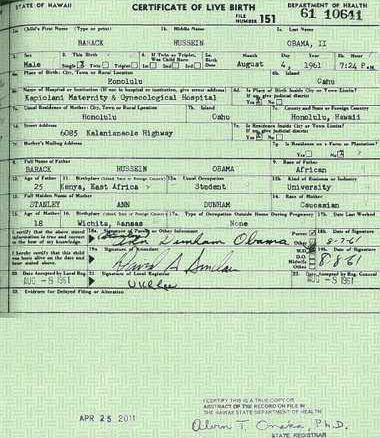 STATE OF HAWAII CERTIFICATE OF LIVE BIRTH DEPARTMENT OF HEALTH
FILE NUMBER 151 61 10641
1a. Child's First Name (Type or print) 1b. Middle Name 1c. Last Name
BARACK HUSSEIN OBAMA, II
2. Sex 3. This Birth 4. If Twin or Triplet, Was Child Born 5a. Birth Date Month Day Year 5b. Hour
Male Single Twin Triplet 1st 2nd 3rd August 4, 1961 7:24 P.M.
6a. Place of Birth: City, Town or Rural Location 6b. Island
Honolulu Oahu
6c. Name of Hospital or Institution (If not in hospital or institution, give street address) 6d. Is Place of Birth Inside City or Town Limits? If no, give judicial district
Kapiolani Maternity & Gynecological Hospital Yes No
7a. Usual Residence of Mother: City, Town or Rural Location 7b. Island 7c. County and State or Foreign Country
Honolulu Oahu Honolulu, Hawaii
7d. Street Address 7e. Is Residence Inside City or Town Limits? If no, give judicial district
6085 Kalanianaole Highway Yes No
7f. Mother's Mailing Address 7g. Is Residence on a Farm or Plantation?
Yes No
8. Full Name of Father 9. Race of Father
BARACK HUSSEIN OBAMA African
10. Age of Father 11. Birthplace (Island, State or Foreign Country) 12a. Usual Occupation 12b. Kind of Business or Industry
25 Kenya, East Africa Student University
13. Full Maiden Name of Mother 14. Race of Mother
STANLEY ANN DUNHAM Caucasian
15. Age of Mother 16. Birthplace (Island, State or Foreign Country) 17a. Type of Occupation Outside Home During Pregnancy 17b. Date Last Worked
18 Wichita, Kansas None
I certify that the above stated information is true and correct to the best of my knowledge. 18a. Signature of Parent or Other Informant Parent Other 18b. Date of Signature
Ann Dunham Obama 8-7-61
I hereby certify that this child was born alive on the date and hour stated above. 19a. Signature of Attendant M.D. D.O. Midwife Other 19b. Date of Signature
David A Sinclair 8-8-61
20. Date Accepted by Local Reg. 21. Signature of Local Registrar 22. Date Accepted by Reg. General
AUG -8 1961 UKLee AUG -8 1961
23. Evidence for Delayed Filing or Alteration
APR 25 2011
I CERTIFY THIS IS A TRUE COPY OR
ABSTRACT OF THE RECORD ON FILE IN
THE HAWAII STATE DEPARTMENT OF HEALTH
Alvin T. Onaka, Ph.D.
STATE REGISTRAR